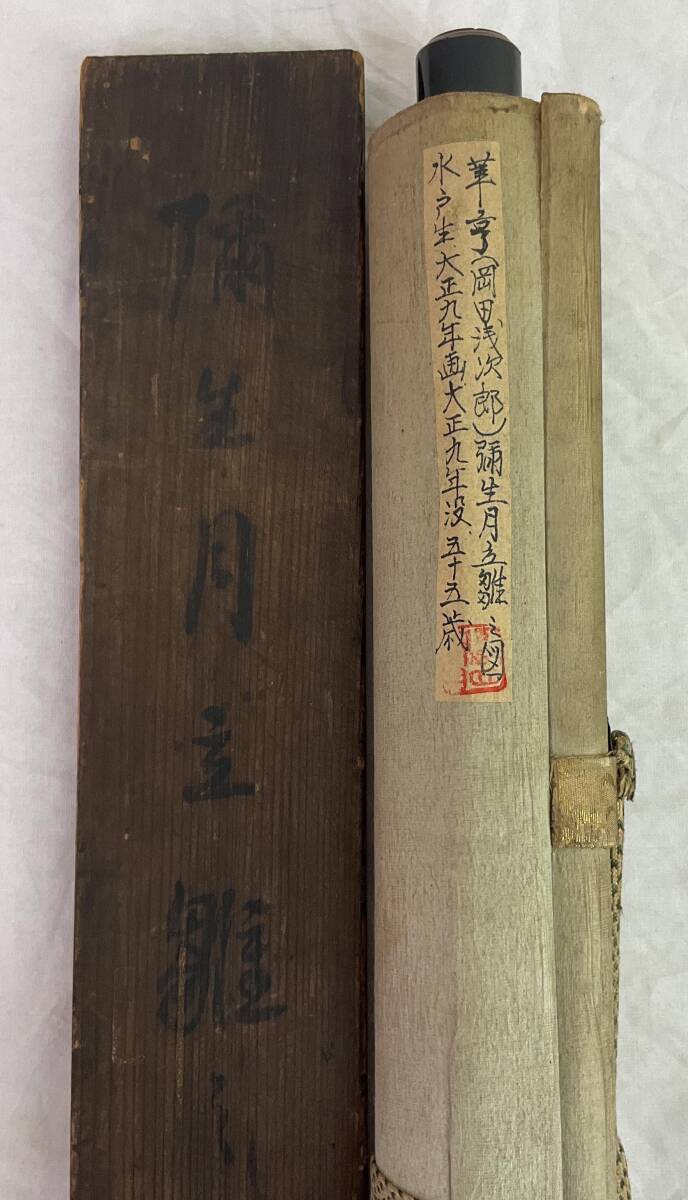 彌生月立雛之
華亭(岡田浅次郎)彌生月立雛之図
水戸生、大正九年画大正九年没 五十五歳